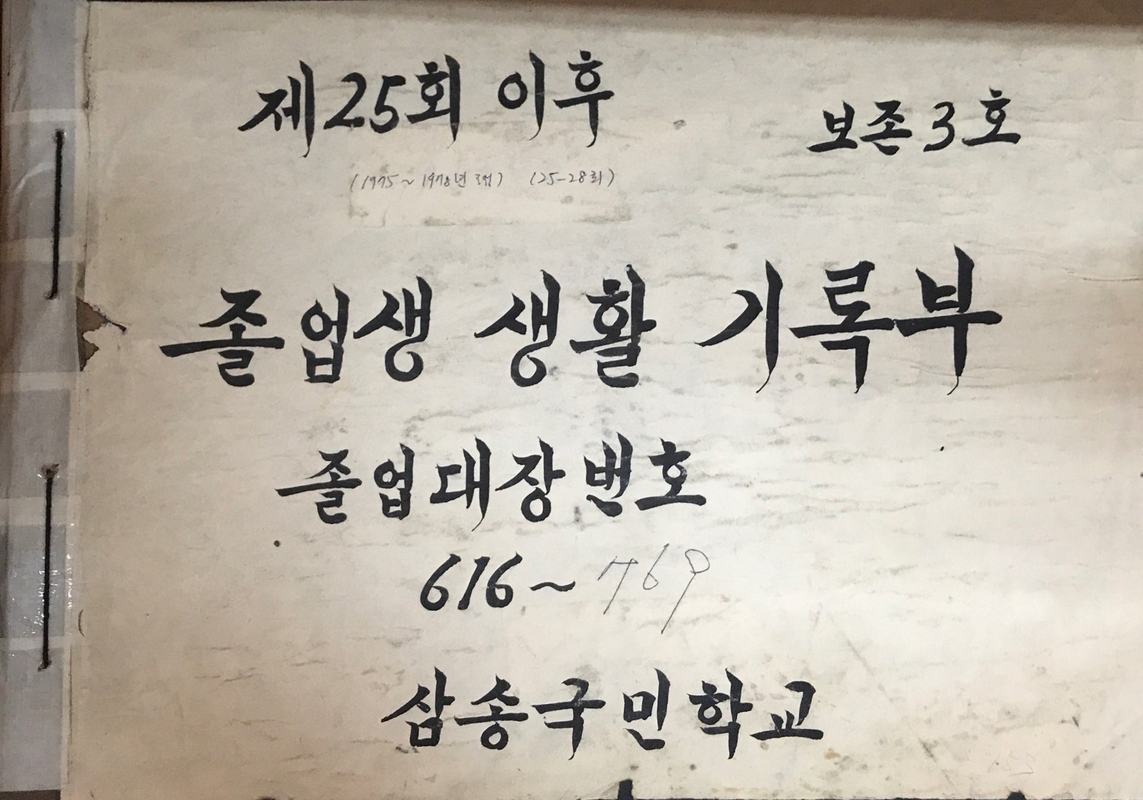 제25회 이후
보존 3호
(1975~1978년 졸업) (25-28회)
졸업생 생활 기록부
졸업대장번호
616~769
삼송국민학교